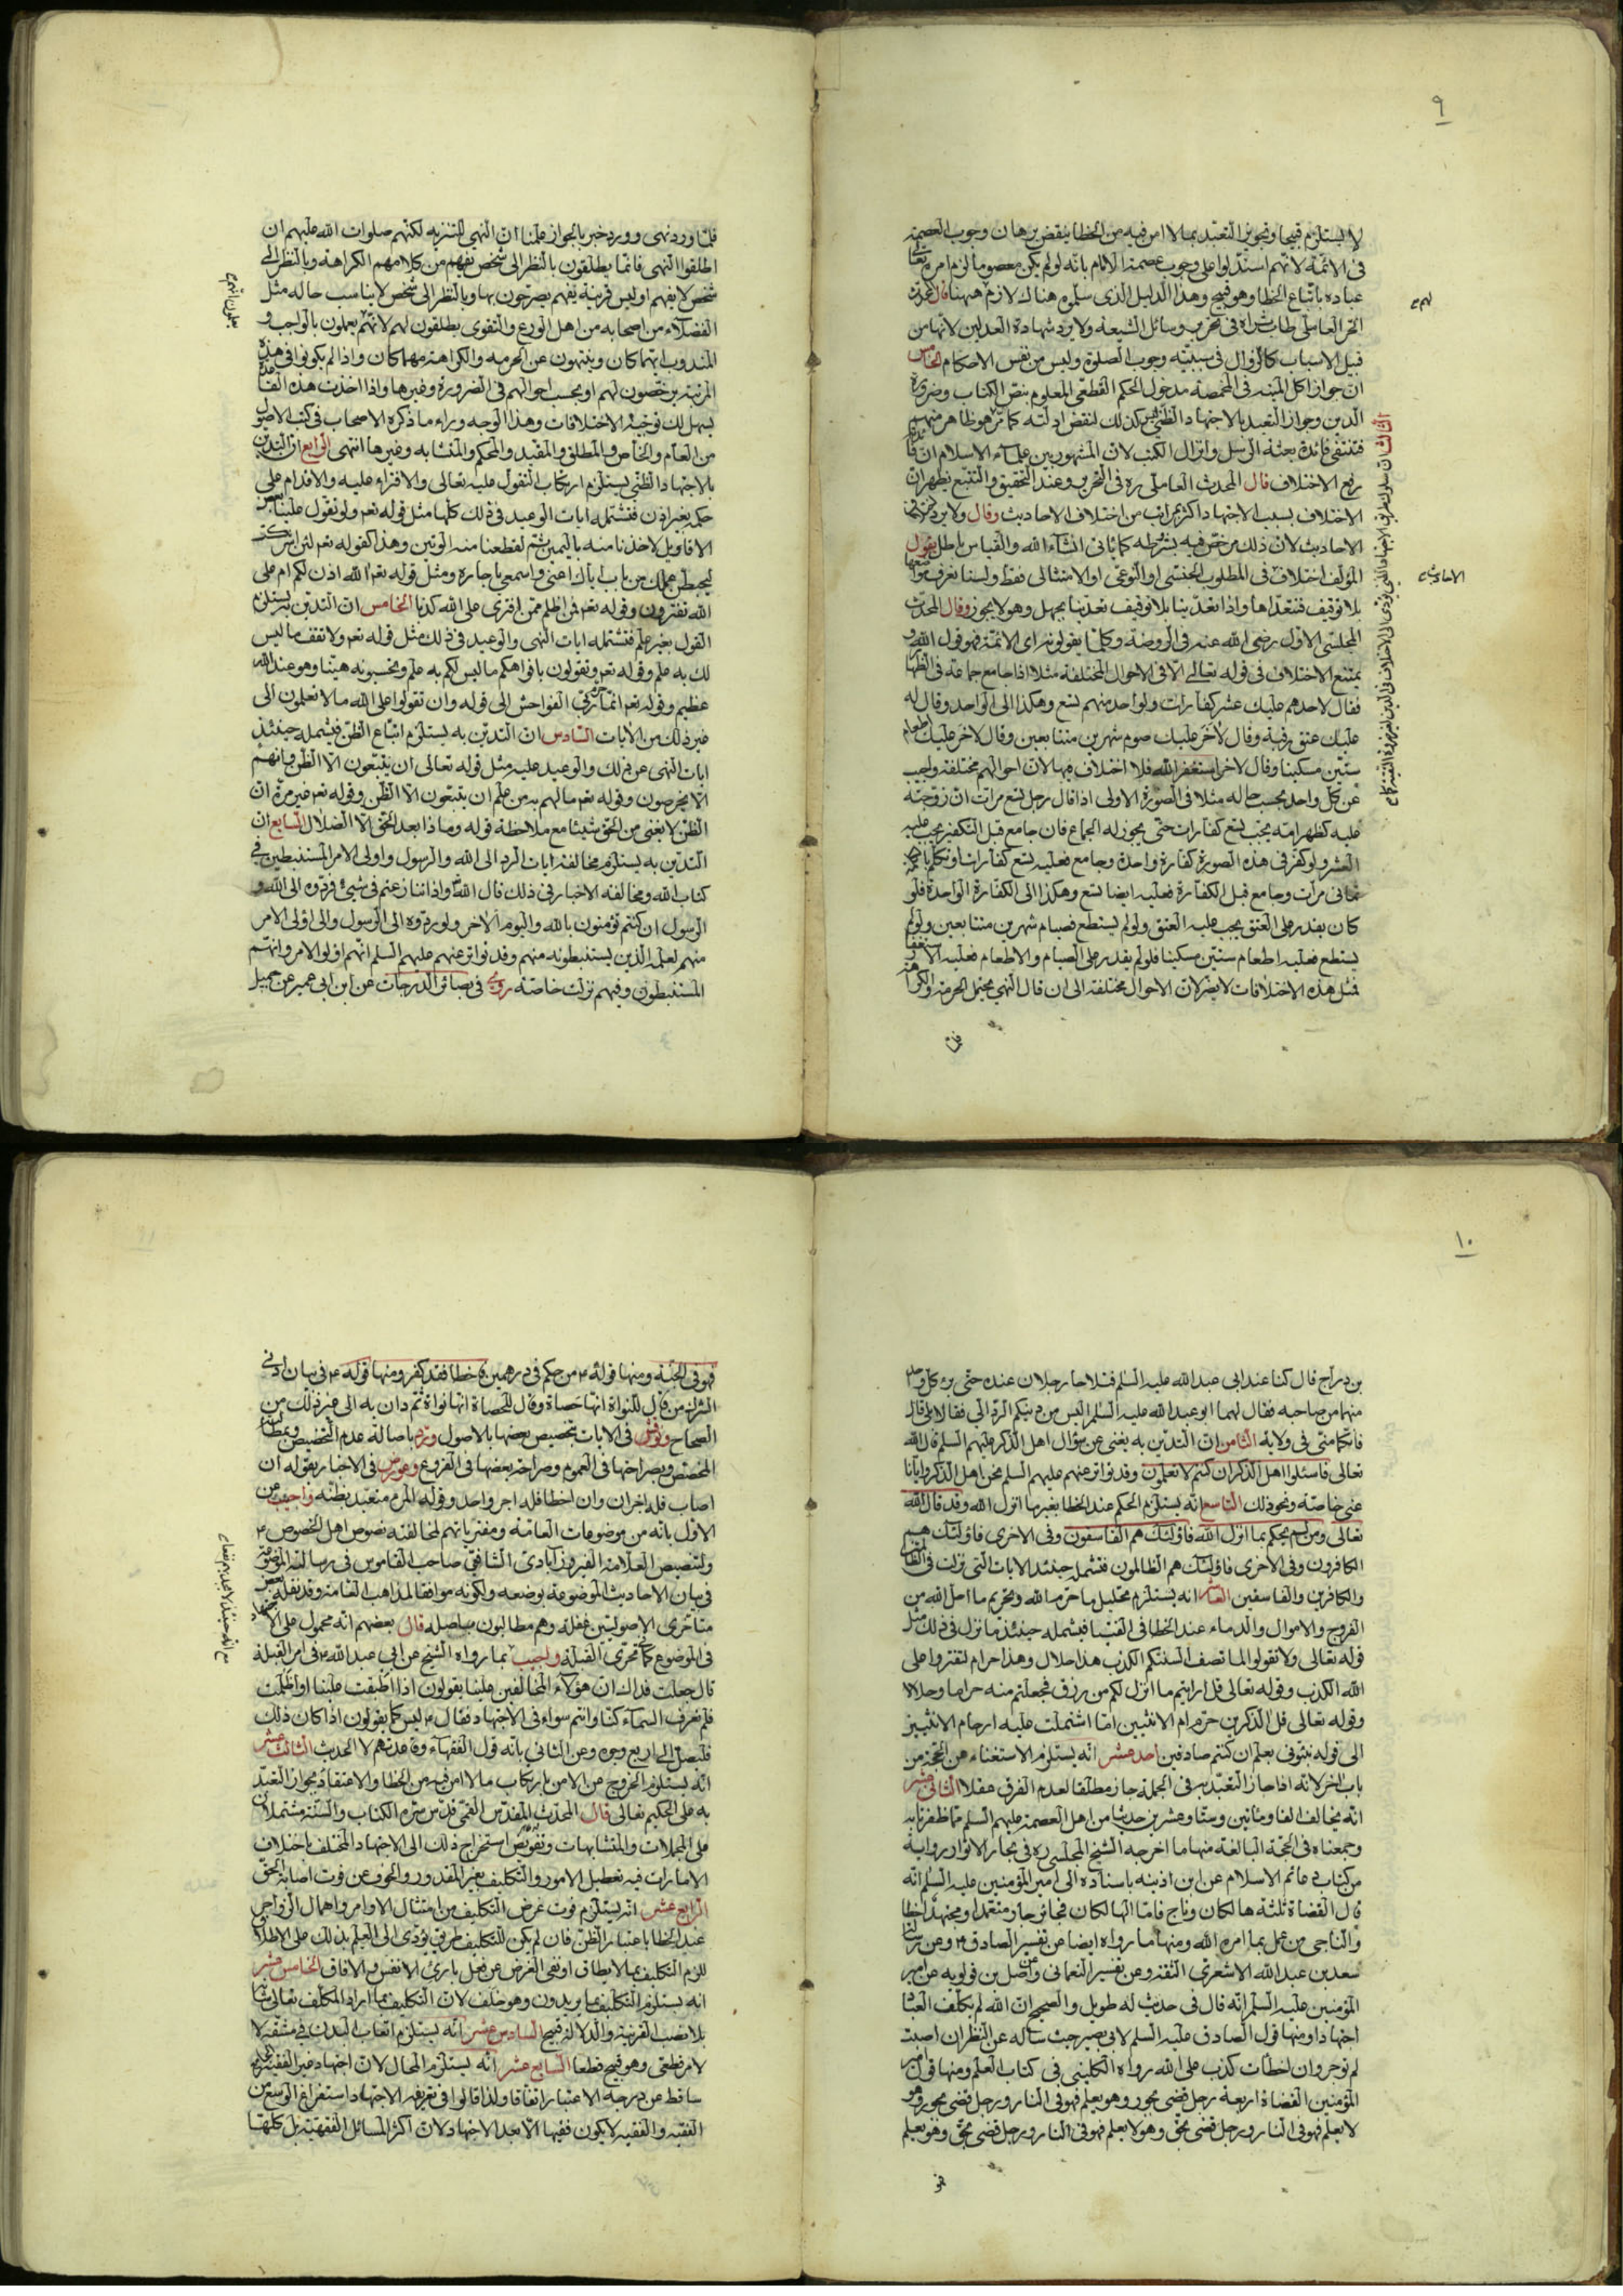 ٩
لا يستلزم قبيحا وتجويز التعبد بما لا امن فيه من الخطا ينقض برهان وجوب العصمة
فى الائمة لانهم استدلوا على وجوب عصمة الامام بانه لو لم يكن معصوما لزم امره تعالى
عباده باتباع الخطا وهو قبيح وهذا الدليل الذى سلموه هناك لازم ههنا قال المحدث
الحر العاملى طاب ثراه فى تحرير وسائل الشيعة ولا يرد شهادة العدلين لانها من
قبيل الاسباب كالزوال فى سببية وجوب الصلوة وليس من نفس الاحكام
ان جواز اكل الميتة فى المخمصة مدخول الحكم القطعى المعلوم بنص الكتاب وضرورة
الدين وجواز التعبد بالاجتهاد الظنى ليس كذلك لنقض ادلته كما مر وهو ظاهر
فتنتفى فائدة بعثة الرسل وانزال الكتب لان المشهور بين علماء الاسلام ان
رفع الاختلاف قال المحدث العاملى ره فى التحرير وعند التحقيق والتتبع يظهر ان
الاختلاف بسبب الاجتهاد اكثر بمراتب من اختلاف الاحاديث وقال ولا يرد
الاحاديث لان ذلك مرخص فيه بشرطه كما ياتى انشاء الله والقياس باطل يقول
المؤلف اختلاف فى المطلوب الجنسى او النوعى او الامتثالى فقط ولسنا نعرف
بلا توقيف فنتعداها واذا تعدينا بلا توقيف تعدينا بجهل وهو لا يجوز وقال المحدث
المجلسى الاول رضى الله عنه فى الروضة وكلما يقولونه اى الائمة فهو قول الله و
يمتنع الاختلاف فى قوله تعالى الا فى الاحوال المختلفة مثلا اذا جامع جماعة فى الظهار
فقال لاحدهم عليك عشر كفارات ولواحد منهم تسع وهكذا الى الواحد وقال له
عليك عتق رقبة وقال لاخر عليك صوم شهرين متتابعين وقال لاخر عليك اطعام
ستين مسكينا وقال لاخر استغفر الله فلا اختلاف فيها لان احوالهم مختلفة واجيب
عن كل واحد بحسب حاله مثلا فى الصورة الاولى اذا قال رجل تسع مرات ان زوجته
عليه كظهر امه يجب تسع كفارات حتى يجوز له الجماع فان جامع قبل التكفير يجب عليه
العشر ولو كفر فى هذه الصورة كفارة واحدة وجامع فعليه تسع كفارات
ثمانى مرات وجامع قبل الكفارة فعليه ايضا تسع وهكذا الى الكفارة الواحدة فلو
كان يقدر على العتق يجب عليه العتق ولو لم يستطع فصيام شهرين متتابعين ولو لم
يستطع فعليه اطعام ستين مسكينا فلو لم يقدر على الصيام والاطعام فعليه الاستغفار
فمثل هذه الاختلافات لا يضر لان الاحوال مختلفة الى ان قال النهى يحتمل الحرمة والكراهة
فلما
فلما ورد نهى وورد خبر بالجواز علمنا ان النهى للتنزيه لكنهم صلوات الله عليهم ان
اطلقوا النهى فانما يطلقون بالنظر الى شخص يفهم من كلامهم الكراهة وبالنظر الى
شخص لا يفهم او ليس قرينة يفهم يصرحون بها وبالنظر الى شخص لا يناسب حاله مثل
الفضلاء من اصحابه من اهل الورع والتقوى يطلقون لهم لانهم يعملون بالواجب و
المندوب ايهما كان وينتهون عن الحرمة والكراهة مهما كان واذا لم يكونوا فى هذه
المرتبة يرخصون لهم او بحسب احوالهم فى الضرورة وغيرها واذا اخذت هذه
يسهل لك توجيه الاختلافات وهذا الوجه وراء ما ذكره الاصحاب فى كتب الاصول
من العام والخاص والمطلق والمقيد والمحكم والمتشابه وغيرها انتهى الرابع ان التدين
بالاجتهاد الظنى يستلزم ارتكاب التقول عليه تعالى والافتراء عليه والاقدام على
حكمه بغير اذن فتشتمله ايات الوعيد فى ذلك كلها مثل قوله تعم ولو تقول علينا بعض
الاقاويل لاخذنا منه باليمين ثم لقطعنا منه الوتين وهذا كقوله تعم لئن اشركت
ليحبطن عملك من باب اياك اعنى واسمعى يا جاره ومثل قوله تعم الله اذن لكم ام على
الله تفترون وقوله تعم فمن اظلم ممن افترى على الله كذبا الخامس ان التدين به يستلزم
القول بغير علم فتشتمله ايات النهى والوعيد فى ذلك مثل قوله تعم ولا تقف ما ليس
لك به علم وقوله تعم وتقولون بافواهكم ما ليس لكم به علم وتحسبونه هينا وهو عند الله
عظيم وقوله تعم انما حرم ربى الفواحش الى قوله وان تقولوا على الله ما لا تعلمون الى
غير ذلك من الايات السادس ان التدين به يستلزم اتباع الظن فيشمله حينئذ
ايات النهى عن ذلك والوعيد عليه مثل قوله تعالى ان يتبعون الا الظن وانهم
الا يخرصون وقوله تعم ما لهم به من علم ان يتبعون الا الظن وقوله تعم غير مرة ان
الظن لا يغنى من الحق شيئا مع ملاحظة قوله وماذا بعد الحق الا الضلال السابع ان
التدين به يستلزم مخالفة ايات الرد الى الله والرسول واولى الامر المستنبطين فى
كتاب الله ومخالفة الاخبار فى ذلك قال الله واذا تنازعتم فى شيئ فردوه الى الله و
الرسول ان كنتم تؤمنون بالله واليوم الاخر ولو ردوه الى الرسول والى اولى الامر
منهم لعلمه الذين يستنبطونه منهم وقد تواتر عنهم عليهم السلم انهم اولو الامر وانهم
المستنبطون وفيهم نزلت خاصة روى فى بصائر الدرجات عن ابن ابى عمير عن جميل
١٠
بن دراج قال كنا عند ابى عبد الله عليه السلم فتلاحا رجلان عنده حتى برئ كل واحد
منهما من صاحبه فقال لهما ابو عبد الله عليه السلم اليس من دينكم الرد الى فقالا بلى قال
فانكما منى فى ولاية الثامن ان التدين به يغنى عن سؤال اهل الذكر عليهم السلم قال الله
تعالى فاسئلوا اهل الذكر ان كنتم لا تعلمون وقد تواتر عنهم عليهم السلم نحن اهل الذكر وايانا
عنى خاصة ونحو ذلك التاسع انه يستلزم الحكم عند الخطا بغير ما انزل الله وقد قال الله
تعالى ومن لم يحكم بما انزل الله فاولئك هم الفاسقون وفى الاخرى فاولئك هم
الكافرون وفى الاخرى فاولئك هم الظالمون فتشمله حينئذ الايات التى نزلت فى الظالمين
والكافرين والفاسقين العاشر انه يستلزم تحليل ما حرم الله وتحريم ما احل الله من
الفروج والاموال والدماء عند الخطا فى الفتيا فيشمله حينئذ ما نزل فى ذلك مثل
قوله تعالى ولا تقولوا لما تصف السنتكم الكذب هذا حلال وهذا حرام لتفتروا على
الله الكذب وقوله تعالى قل ارايتم ما انزل لكم من رزق فجعلتم منه حراما وحلالا
وقوله تعالى قل الذكرين حرم ام الانثيين اما اشتملت عليه ارحام الانثيين
الى قوله نبئونى بعلم ان كنتم صادقين احد عشر انه يستلزم الاستغناء عن الحجة من
باب اخر لانه اذا جاز التعبد به فى الجملة جاز مطلقا لعدم الفرق عقلا الثانى عشر
انه يخالف الفا ومائتين وستا وعشرين حديثا من اهل العصمة عليهم السلم مما ظفرنا به
وجمعناه فى الحجة البالغة منها ما اخرجه الشيخ المجلسى ره فى بحار الانوار برواية
من كتاب دعائم الاسلام عن ابن اذينه باسناده الى امير المؤمنين عليه السلم انه
قال القضاة ثلثة هالكان وناج فاما الهالكان فجائر جار متعمدا ومجتهد اخطا
والناجى من عمل بما امره الله ومنها ما رواه ايضا عن تفسير الصادق ع وعن رسالة
سعد بن عبد الله الاشعرى الثقة وعن تفسير النعمانى وعن اصل بن قولويه عن امير
المؤمنين عليه السلم انه قال فى حديث له طويل والصحيح ان الله لم يكلف العباد
اجتهادا ومنها قول الصادق عليه السلم لابى بصير حيث ساله عن النظر ان اصبت
لم توجر وان اخطات كذبت على الله رواه الكلينى فى كتاب العلم ومنها قول امير
المؤمنين القضاة اربعة رجل قضى بجور وهو يعلم فهو فى النار ورجل قضى بجور وهو
لا يعلم فهو فى النار ورجل قضى بحق وهو لا يعلم فهو فى النار ورجل قضى بحق وهو يعلم
فهو
فهو فى الجنة ومنها قوله ع من حكم فى درهمين فاخطا فقد كفر ومنها قوله ع فى بيان ادنى
الشرك من قال للنواة انها حصاة وقال للحصاة انها نواة ثم دان به الى غير ذلك من
الصحاح ونوقش فى الايات بتخصيص بعضها بالاصول ورد باصالة عدم التخصيص
المخصص وبصراحتها فى العموم وصراحة بعضها فى الفروع وعورض فى الاخبار بقوله ان
اصاب فله اجران وان اخطا فله اجر واحد وقوله المرء متعبد بظنه واجيب عن
الاول بانه من موضوعات العامة ومفترياتهم لمخالفته نصوص اهل الخصوص ع
ولتنصيص العلامة الفيروزابادى الشافعى صاحب القاموس فى رسالته الموضوعة
فى بيان الاحاديث الموضوعة بوضعه ولكونه موافقا لمذاهب العامة وقد نقله بعض
متاخرى الاصوليين غفلة وهم مطالبون باصله قال بعضهم انه محمول على الاجتهاد
فى الموضوع كتحرى القبلة واجيب بما رواه الشيخ عن ابى عبد الله ع فى امر القبلة
قال جعلت فداك ان هؤلاء المخالفين علينا يقولون اذا اطبقت علينا او اظلمت
فلم نعرف السماء كنا وانتم سواء فى الاجتهاد فقال ع ليس كما يقولون اذا كان ذلك
فليصل الى اربع وجوه وعن الثانى بانه قول الفقهاء وقاعدتهم لا الحديث الثالث عشر
انه يستلزم الخروج عن الامن بارتكاب ما لا امن فيه من الخطا والاعتقاد بجواز التعبد
به على الحكيم تعالى قال المحدث المقدس القمى قدس سره الكتاب والسنة مشتملان
على المجملات والمتشابهات وتفويض استخراج ذلك الى الاجتهاد المختلف باختلاف
الامارات فيه تعطيل الامور والتكليف بغير المقدور والخوف عن فوت اصابة الحق
الرابع عشر انه يستلزم فوت غرض التكليف من امتثال الاوامر واهمال الزواجر
عند الخطا باعتبار الظن فان لم يكن للتكليف طريق يؤدى الى العلم بذلك على الاطلاق
للزم التكليف بما لا يطاق او نفى الغرض عن فعل بارئ الانفس والافاق الخامس عشر
انه يستلزم التكليف بما يريدون وهو خلف لان التكليف بما اراد المكلف تعالى شانه
بلا نصب القرينة والدلالة قبيح السادس عشر انه يستلزم اتعاب البدن فى مشقة لا
لامر قطعى وهو قبيح قطعا السابع عشر انه يستلزم المحال لان اجتهاد غير الفقيه
ساقط عن درجة الاعتبار اتفاقا ولذا قالوا فى تعريفه الاجتهاد استفراغ الوسع من
الفقيه والفقيه لا يكون فقيها الا بعد الاجتهاد لان اكثر المسائل الفقهية بل كلها